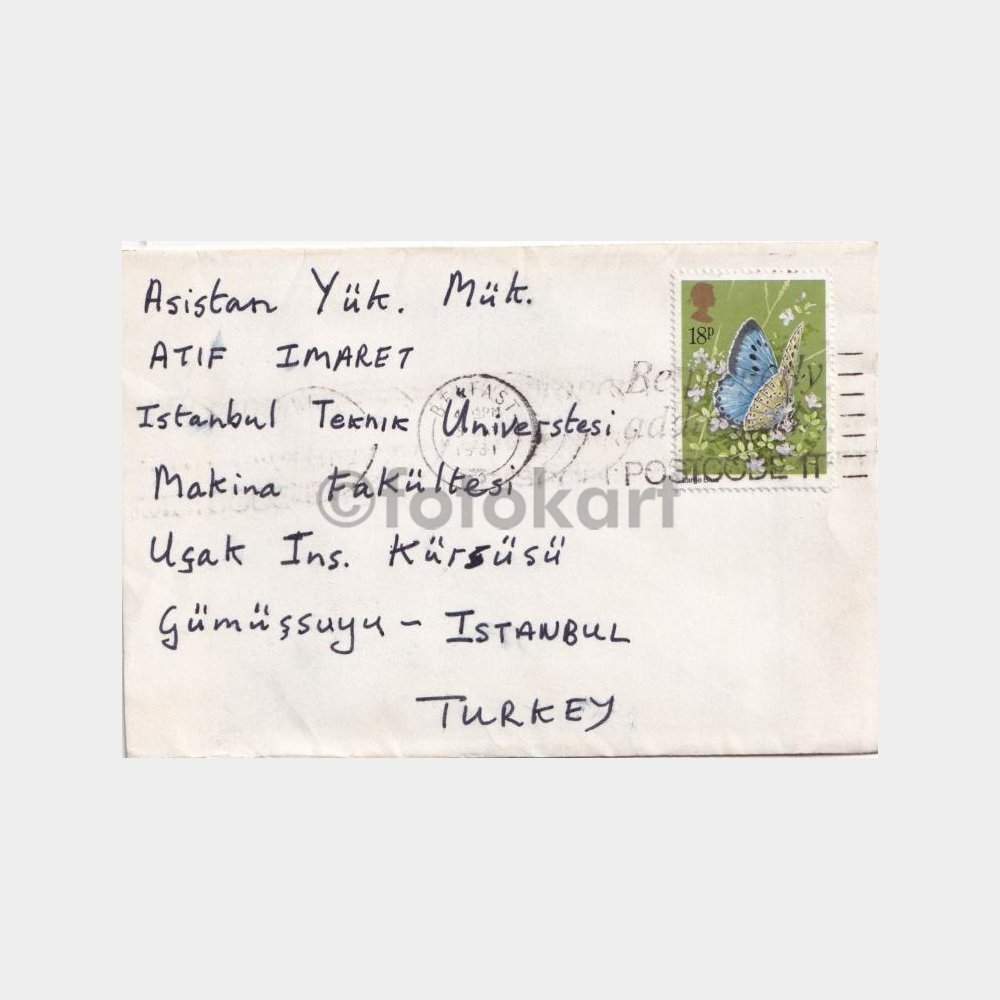 Asistan Yük. Mük.
ATIF IMARET
Istanbul Teknik Üniverstesi
Makina Fakültesi
Uçak Ins. Kürsüsü
Gümüşsuyu – ISTANBUL
TURKEY
18P
BELFAST
1981
POSTCODE IT
Large Blue
©fotokart